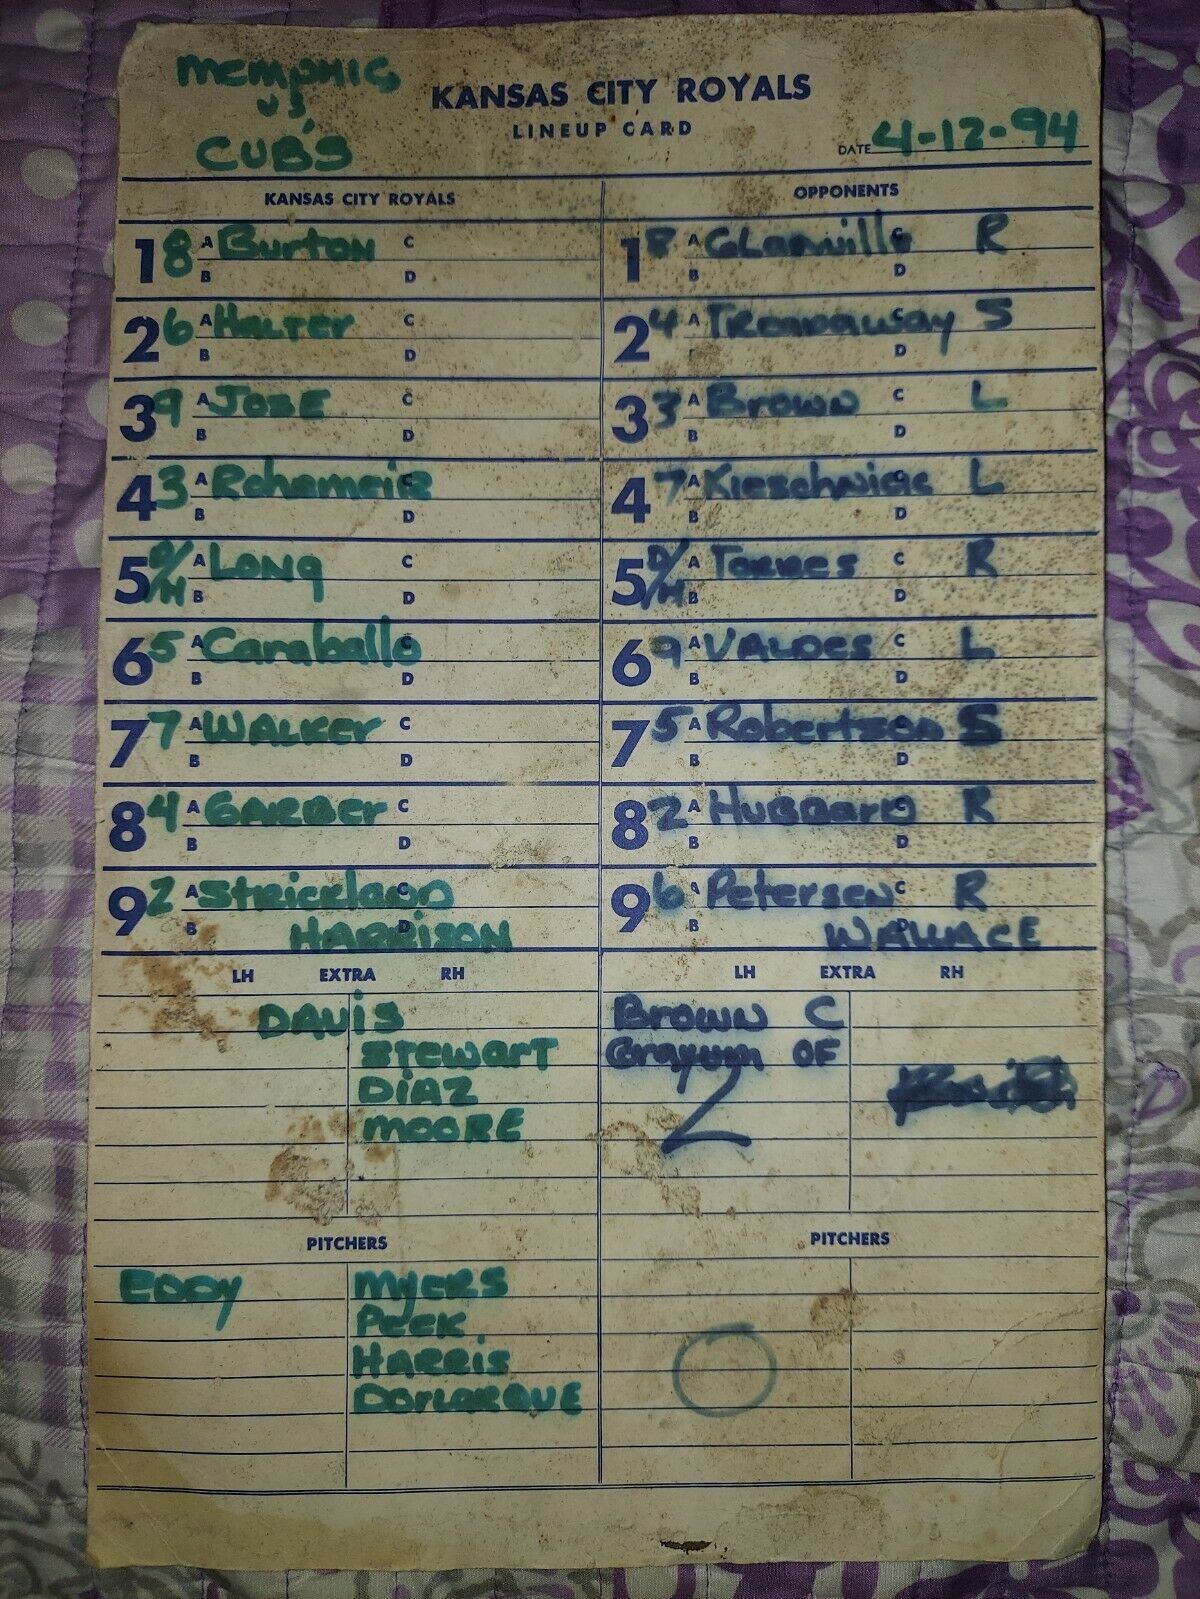 Memphis
vs.
CUBS
KANSAS CITY ROYALS
LINEUP CARD
DATE 4-12-94
KANSAS CITY ROYALS
1 8 A Burton C
B D
2 6 A Halter C
B D
3 9 A Jose C
B D
4 3 A Rohrmeier C
B D
5 D/H A Long C
B D
6 5 A Caraballo C
B D
7 7 A Walker C
B D
8 4 A Garber C
B D
9 2 A Strickland C
B Harrison D
LH EXTRA RH
Davis
Stewart
Diaz
Moore
PITCHERS
Eddy Myers
Peek
Harris
OPPONENTS
1 8 A Glanville C R
B D
2 4 A Treadaway C S
D
3 3 A Brown C L
B D
4 7 A Kieschnick C L
B D
5 D/H A Torres C R
B D
6 9 A Valdes C L
B D
7 5 A Robertson C S
B D
8 2 A Hubbard C R
B D
9 6 A Petersen C R
B Wallace D
LH EXTRA RH
Brown C
OF
2
PITCHERS